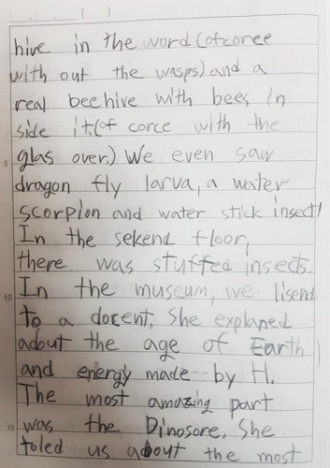 hive in the word (ofcoree
with out the wasps) and a
real beehive with bees in
side it(of corce with the
glas over.) We even saw
dragon fly larva, a water
scorpion and water stick insect!
In the sekend floor,
there was stuffed insects.
In the museum, we lisend
to a docent. She explaned
about the age of Earth
and energy made by H.
The most amazing part
was the Dinosore. She
toled us about the most